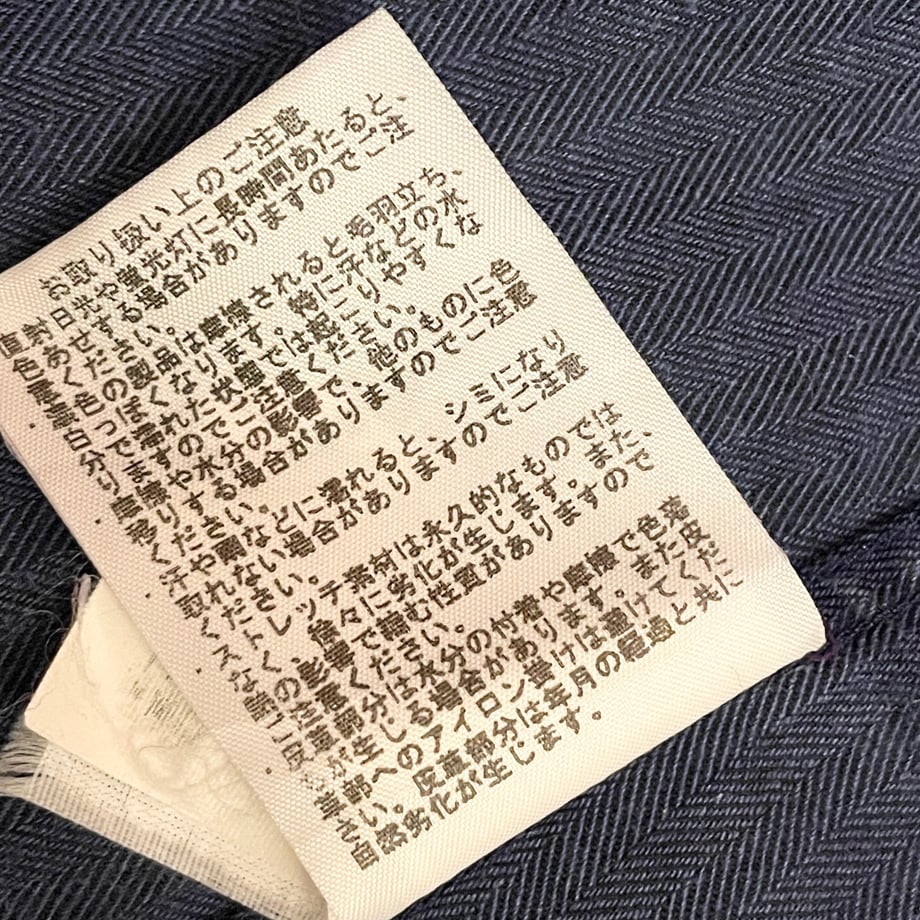 お取り扱い上のご注意
直射日光や蛍光灯に長時間あたると、
色あせする場合がありますのでご注
意ください。
・濃色の製品は摩擦されると毛羽立ち、
白っぽくなります。特に汗などの水
分で濡れた状態では起こりやすくな
りますのでご注意ください。
・摩擦や水分の影響で、他のものに色
移りする場合がありますのでご注意
ください。
・汗や雨などに濡れると、シミになり
取れない場合がありますのでご注意
ください。
・ストレッチ素材は永久的なものでは
なく、徐々に劣化が生じます。また、
熱の影響で縮む性質がありますので
ご注意ください。
・皮革部分は水分の付着や摩擦で色落
ちが生じる場合があります。また皮
革部へのアイロン掛けは避けてくだ
さい。皮革部分は年月の経過と共に
自然劣化が生じます。